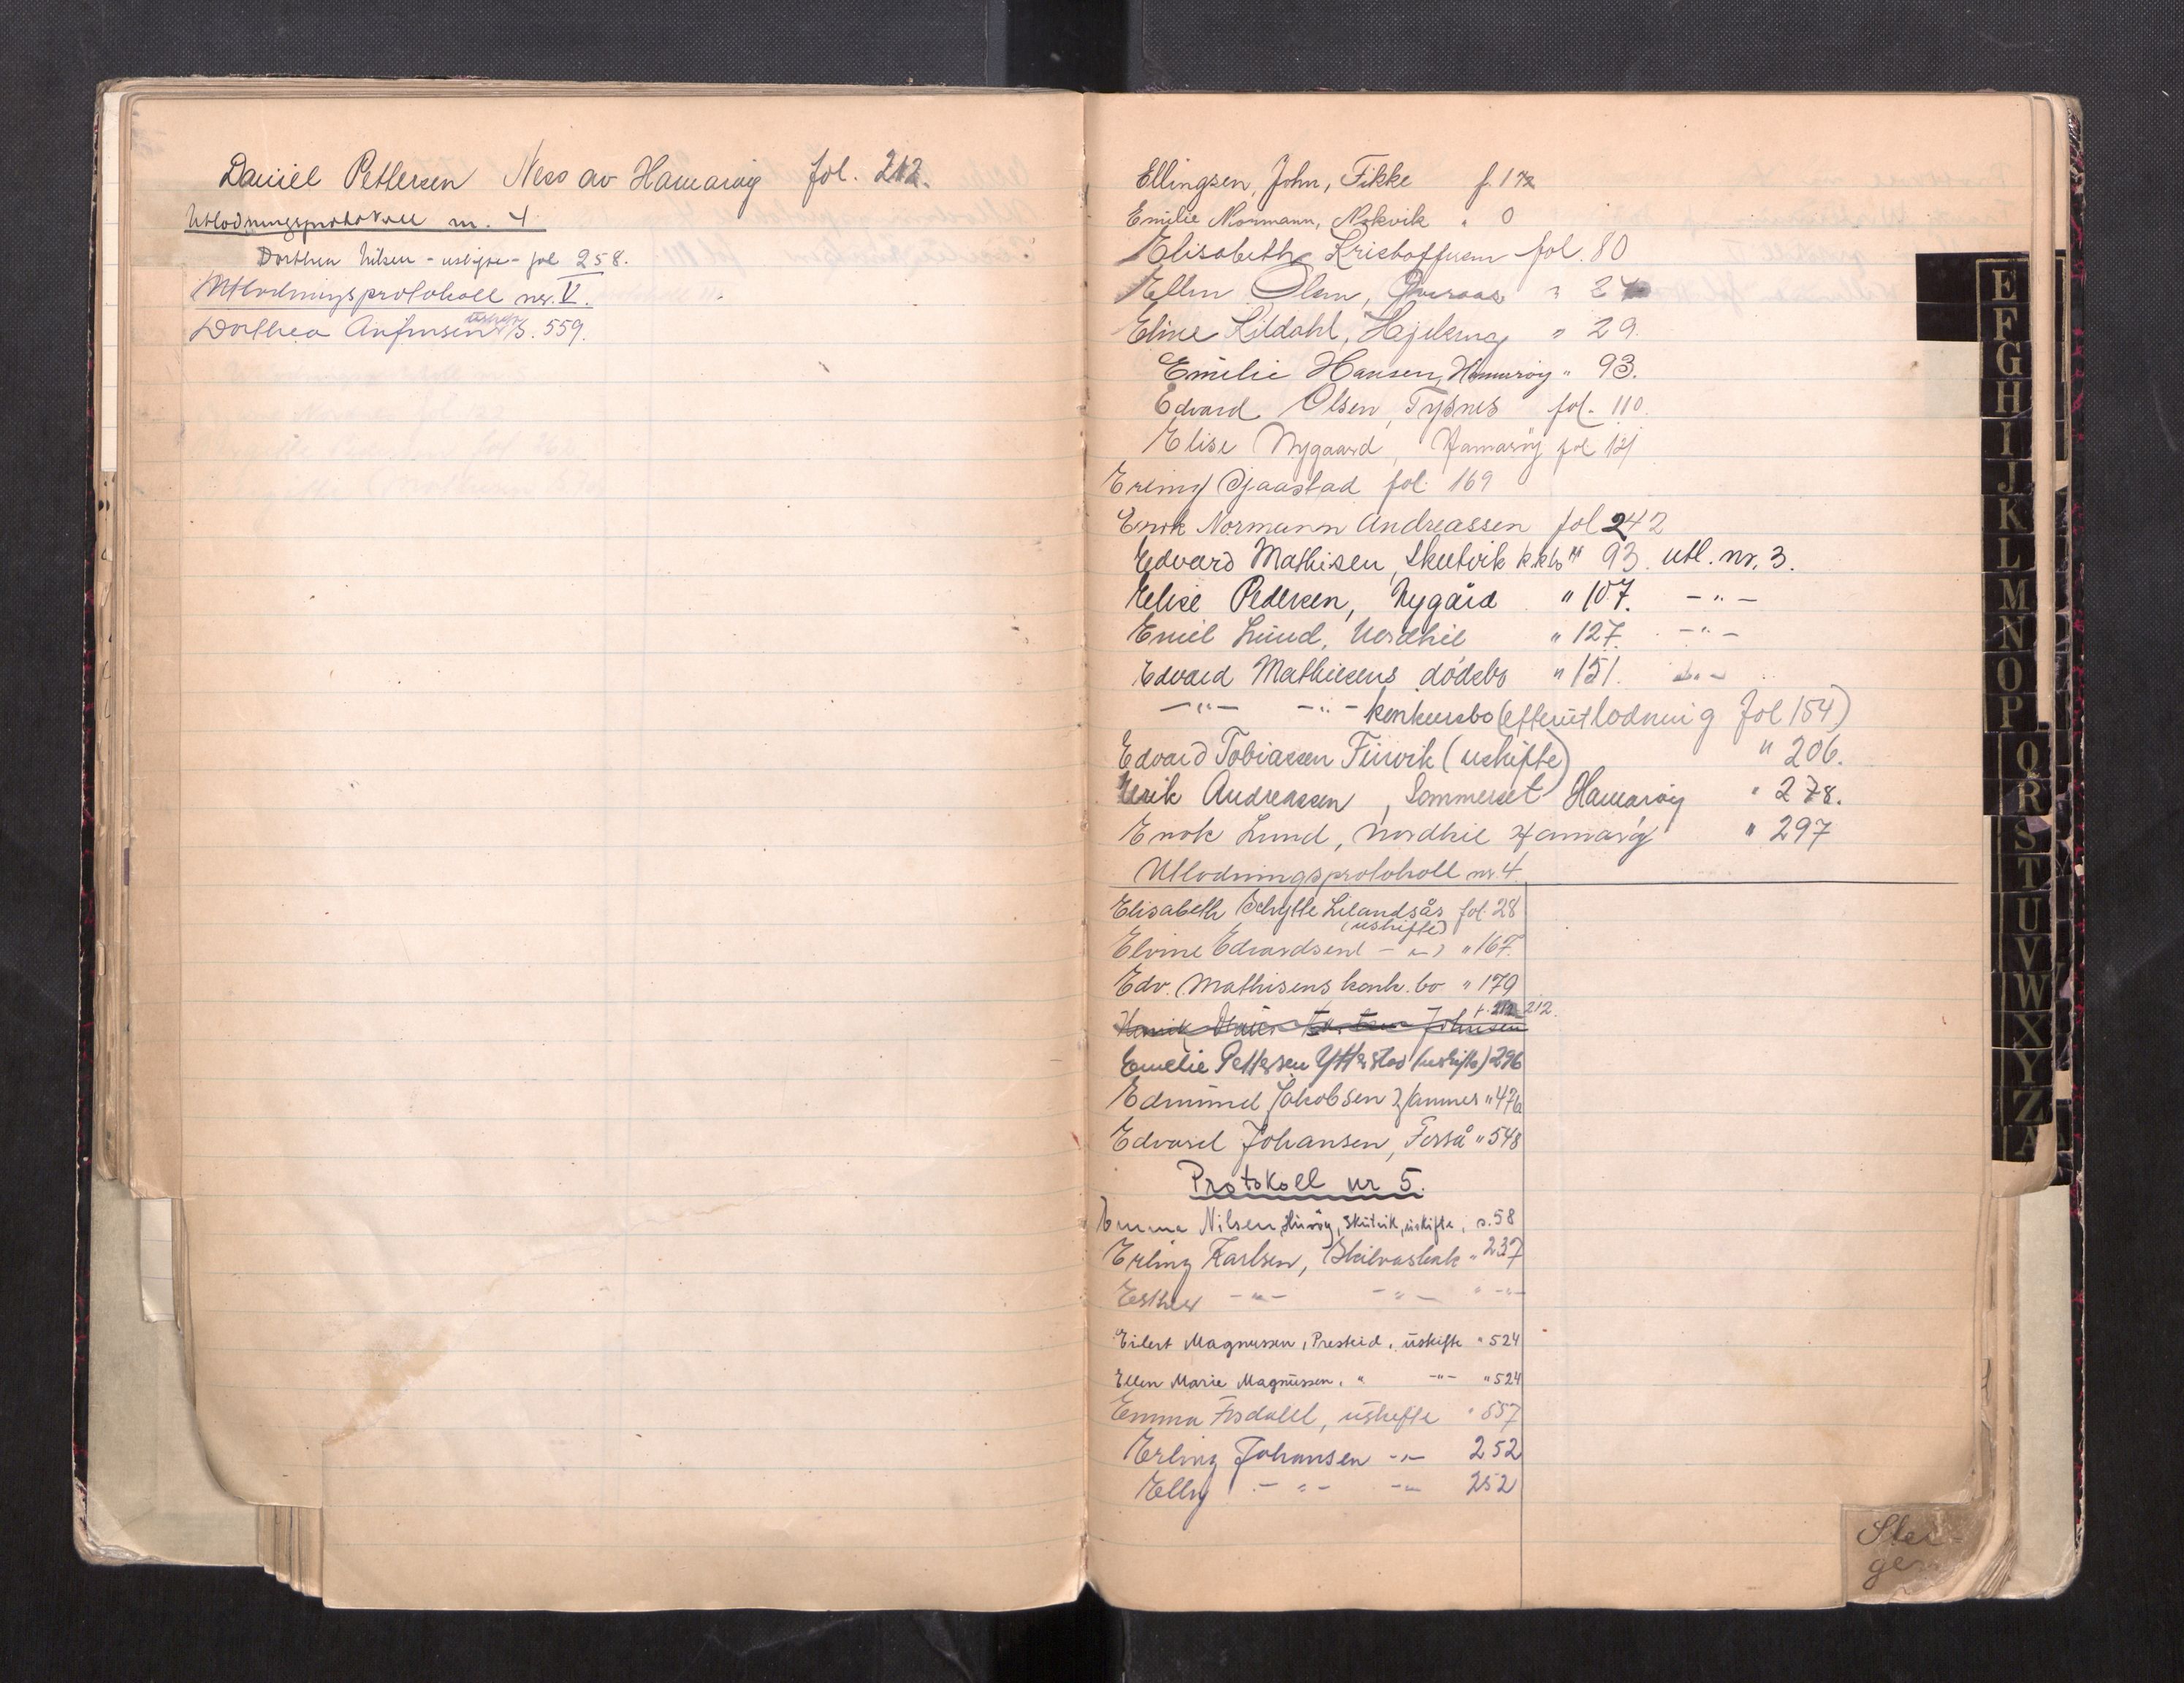 Daniel Pettersen Ness av Hamarøy fol. 212.
Utlodningsprotokoll nr. 4
Dorthea Nilsen - uskifte - fol 258.
Utlodningsprotokoll nr. V.
Dorthea Anfinsen uskifte S. 559.
Ellingsen, John, Fikke f. 172
Emilie Normann, Nokvik " 0
Elisabeth Kristoffersen fol. 80
Ellen Olsen, " 24
Eline Kildahl, " 29.
Emilie Hansen, Hamarøy " 93.
Edvard Olsen, Tysnes fol. 110.
Elise Nygaard, Hamarøy fol 121
Erling Sjaastad fol. 169
Enok Normann Andreassen fol 242
Edvard Mathisen, Skutvik k.kbo " 93. utl. nr. 3.
Elise Pedersen, Nygård " 107. -"-
Emil Lund, Nordhil " 127. -"-
Edvard Mathisens dödsbo " 151. -"-
-"- -"- konkursbo (efterutlodning fol 154)
Edvard Tobiassen Furvik (uskifte) " 206.
Erik Andreassen, Sommerset Hamarøy " 278.
Enok Lund, Nordhil Hamarøy " 297
Utlodningsprotokoll nr. 4
Elisabeth Schytte Lilandsås fol. 28
(uskifte)
Elvine Edvardsen ( -"- ) " 167.
Edv. Mathisens konk. bo " 179
f. 212 212.
Johnsen
Emelie Pettersen Ytterstad (uskifte) 296
Edmund Jakobsen Hammer " 476
Edvard Johansen, Forså " 548
Protokoll nr 5.
Emma Nilsen, Skutvik, uskifte, s. 58
Erling Karlsen, Skilvashak " 237
Esther -"- -"- " -"-
Eilert Magnussen, Presteid, uskifte " 524
Ellen Marie Magnussen, " -"- " 524
Emma Fosdahl, uskifte " 557
Erling Johansen -"- 252
Elly -"- -"- 252
Stei-
gen
E
F
G
H
I
J
K
L
M
N
O
P
Q
R
S
T
U
V
W
X
Y
Z
A